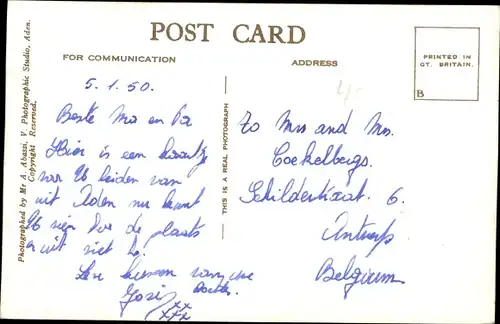 POST CARD
FOR COMMUNICATION
ADDRESS
PRINTED IN
GT. BRITAIN.
B
Photographed by Mr A. Abassi, V. Photographic Studio, Aden.
Copyright Reserved.
THIS IS A REAL PHOTOGRAPH
5.1.50.
Beste Ma en Pa
Hier is een kaartje
voor U beiden van
uit Aden nu kunt
U zien hoe de plaats
er uit ziet
kussen van uwe
xx
xxx
To Mrs and Mr.
Cockelbergs.
Schilderstraat. 6.
Antwerp
Belgium